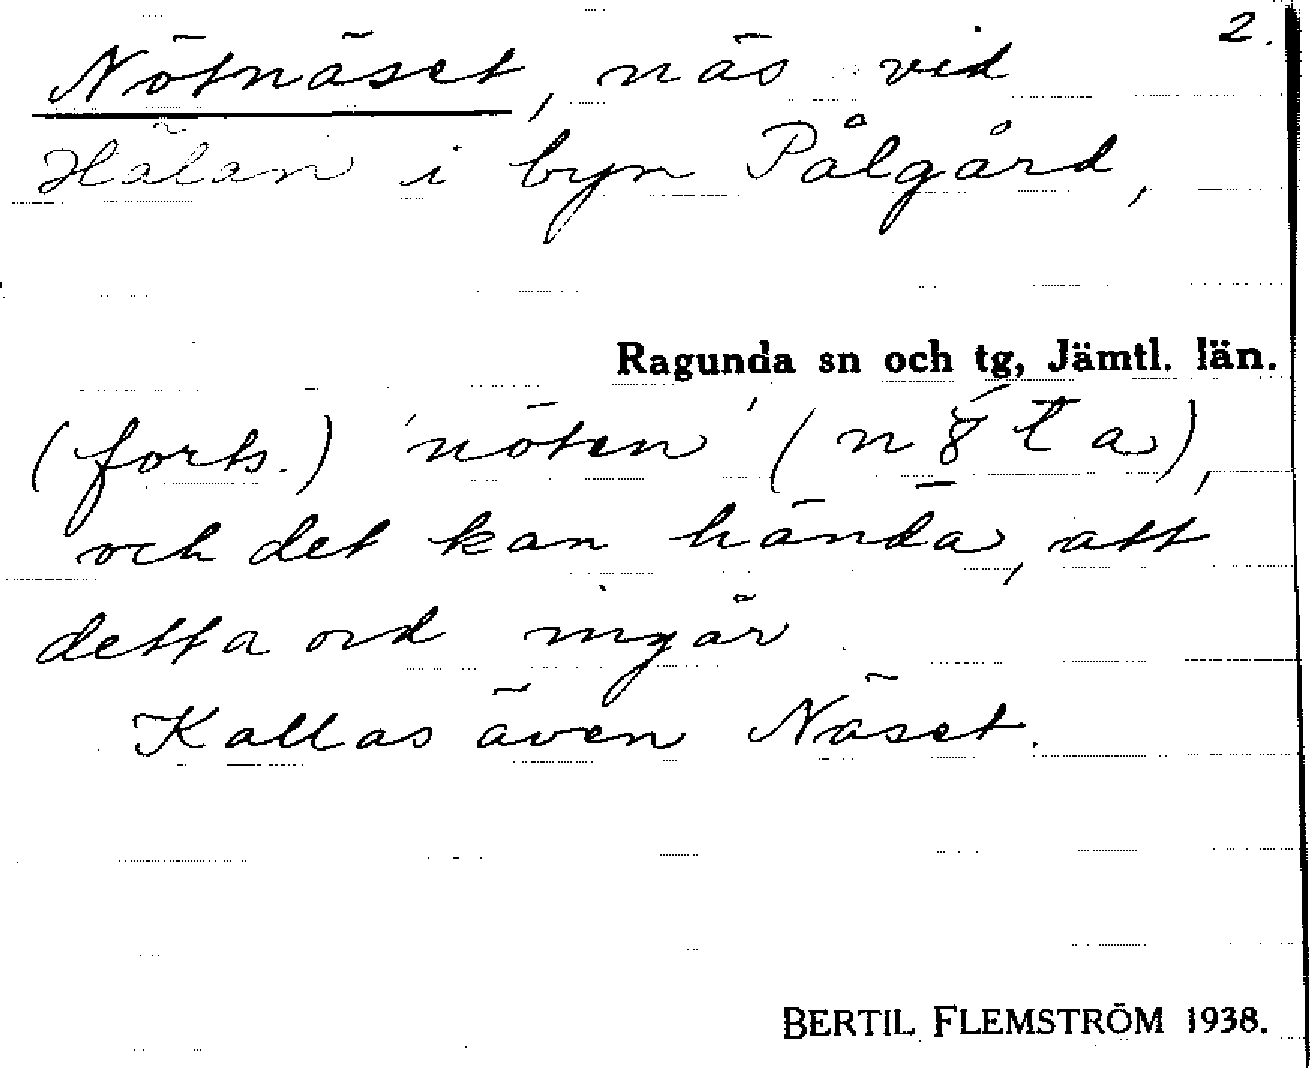 2.
Nötnäset, näs vid
Hälan i byn Pålgård,
Ragunda sn och tg, Jämtl. län.
(forts.) 'nöten' (
och det kan hända, att
detta ord ingår.
Kallas även Näset.
BERTIL FLEMSTRÖM 1938.